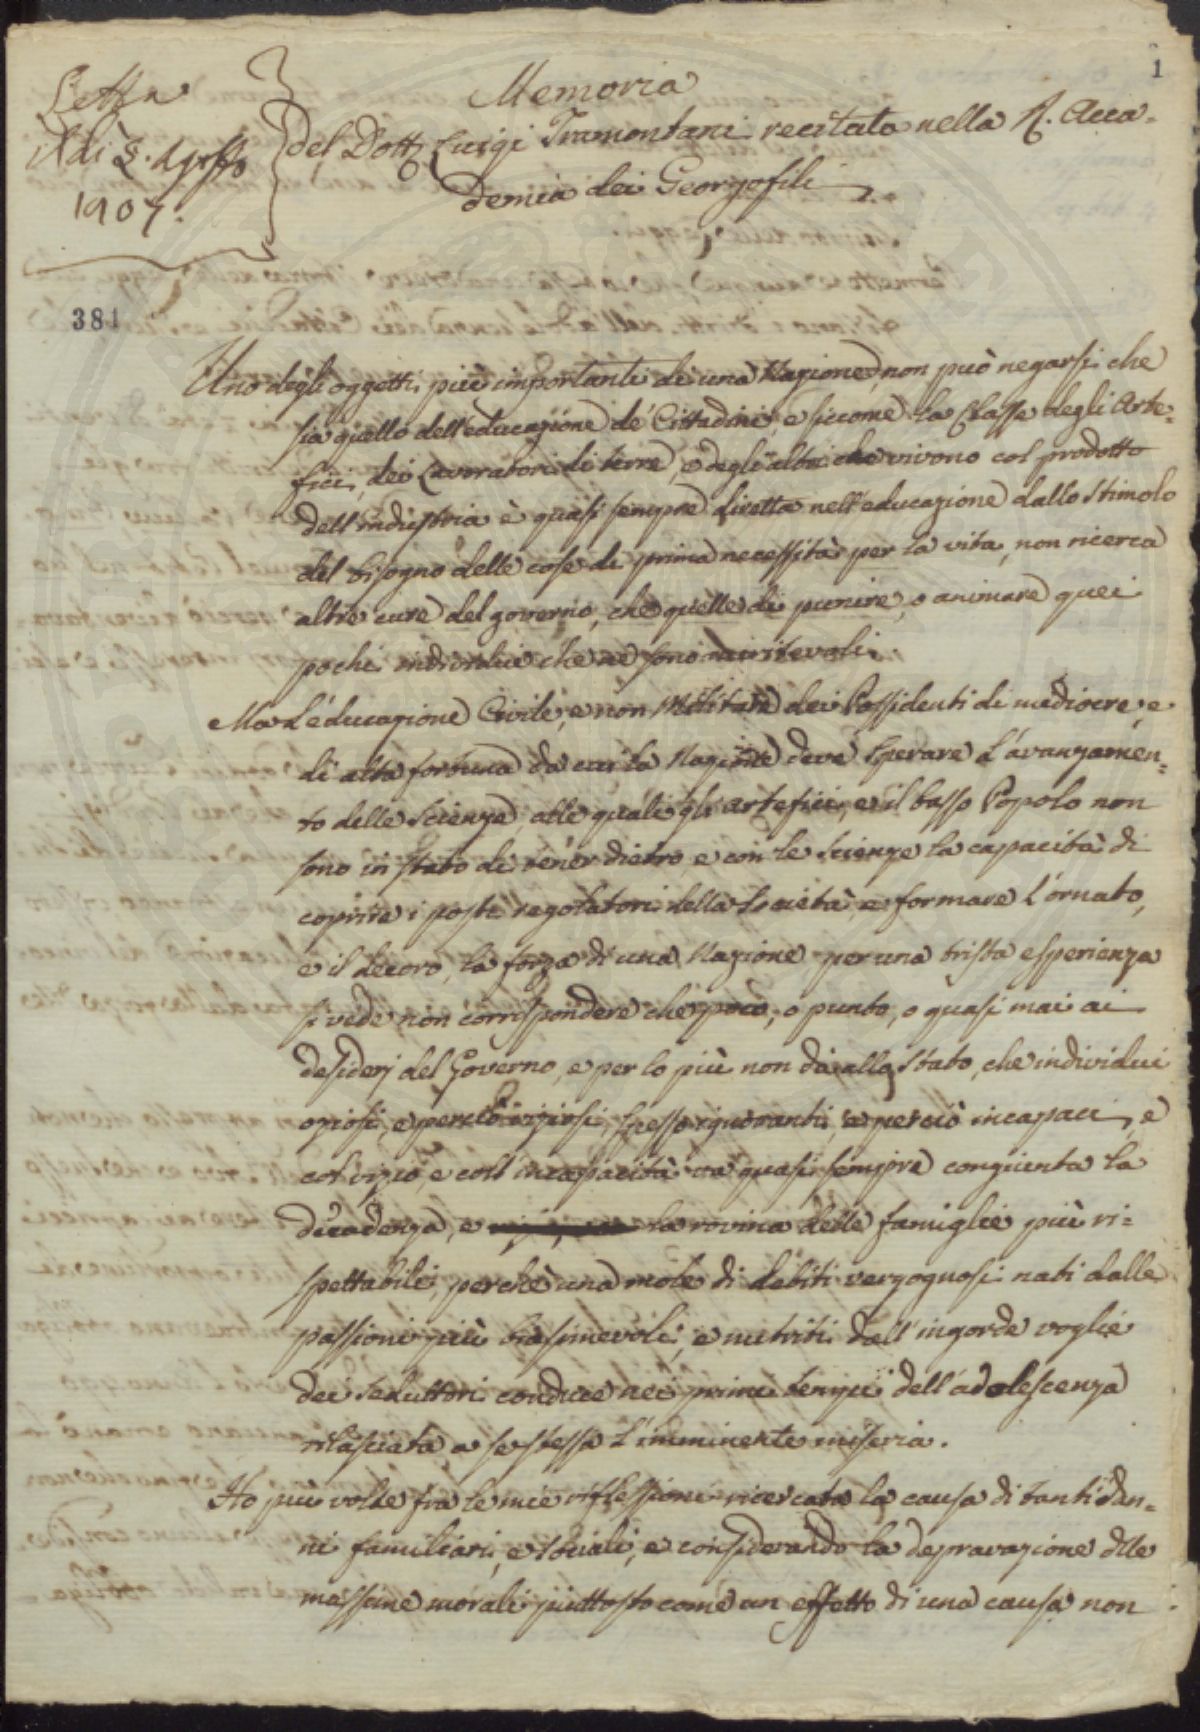 1
Letta
Adì 5. Agosto
1807.
Memoria
del Dott. Luigi Tramontani recitata nella R. Acca-
demia dei Georgofili
381
Uno degli oggetti più importanti di una Nazione, non può negarsi che
sia quello dell'educazione de' Cittadini, e siccome la Classe degli Arte-
fici, dei Lavoratori di terre, e degli altri che vivono col prodotto
dell'industria è quasi sempre diretta nell'educazione dallo stimolo
del bisogno delle cose di prima necessità per la vita, non ricerca
altre cure del governo, che quelle di punire, o animare quei
pochi individui che ne sono meritevoli.
Ma l'educazione Civile, e non Militare dei Possidenti di mediocre, e
di alta fortuna da cui la Nazione deve sperare l'avanzamen-
to delle Scienze, alle quali gli artefici, e il basso Popolo non
sono in stato di tener dietro, e con le Scienze la capacità di
coprire i posti regolatori della Società, e formare l'ornato,
e il decoro, la forza di una Nazione per una trista esperienza
si vede non corrispondere che poco, o punto, o quasi mai ai
desiderj del Governo, e per lo più non dà allo Stato, che individui
oziosi, e perciò viziosi, spesso ignoranti, e perciò incapaci, e
col vizio, e coll'incapacità va quasi sempre congiunta la
decadenza, e la rovina delle famiglie più ri-
spettabili, perchè una mole di debiti vergognosi nati dalle
passioni più biasimevoli, e nutriti dall'ingorde voglie
dei seduttori conduce nei primi tempi dell'adolescenza
rilasciata a se stessa l'imminente miseria.
Ho più volte fra le mie riflessioni ricercata la causa di tanti dan-
ni familiari, e sociali, e considerando la depravazione delle
massime morali piuttosto come un effetto di una causa non